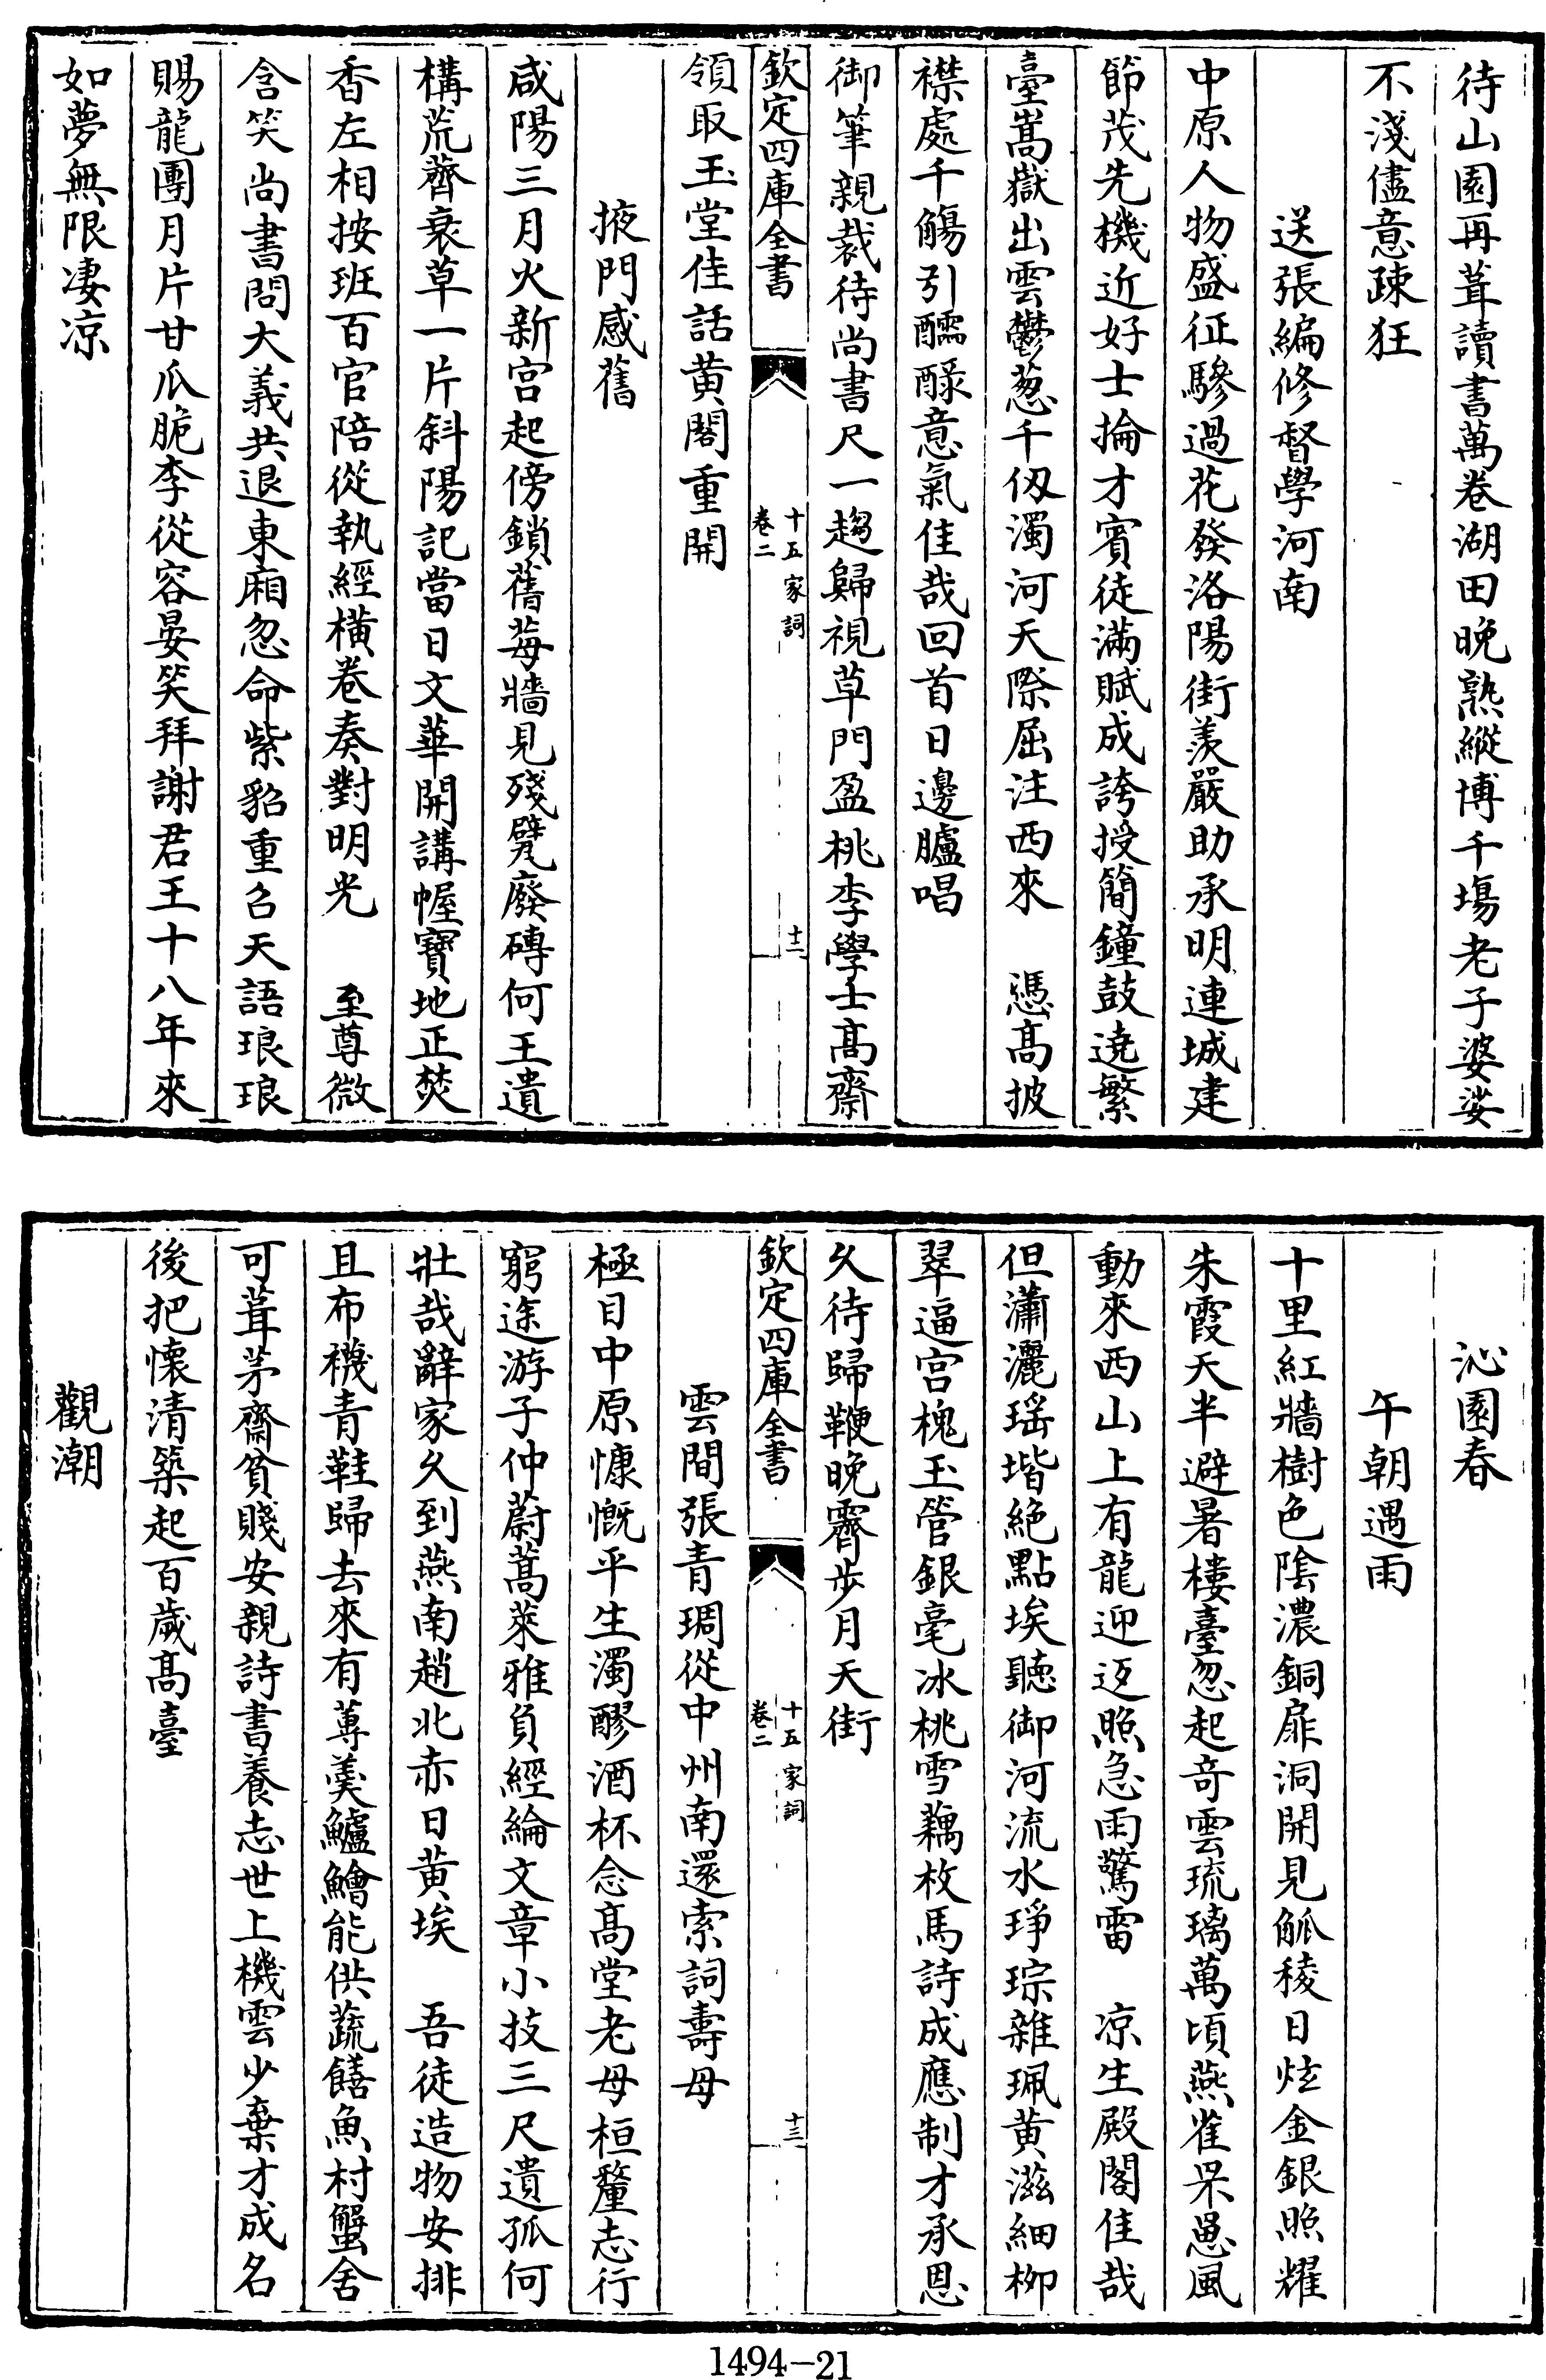 待山園再葺讀書萬卷湖田晚熟縱博千塲老子婆娑
不淺儘意踈狂
送張編修督學河南
中原人物盛征驂過花發洛陽街羡嚴助承明連城建
節茂先機近好士掄才賓徒滿賦成誇授簡鐘鼓遶繁
臺嵩嶽出雲鬱葱千仭濁河天際屈注西來　憑髙披
襟處千觴引醽醁意氣佳哉回首日邊臚唱
御筆親裁待尚書尺一趨歸視草門盈桃李學士髙齋
欽定四庫全書
十五家詞
卷二
十二
領取玉堂佳話黄閣重開
掖門感舊
咸陽三月火新宫起傍鎖舊莓牆見殘甓廢磚何王遺
構荒薺衰草一片斜陽記當日文華開講幄寶地正焚
香左相按班百官陪從執經横卷奏對明光　至尊微
含笑尚書問大義共退東廂忽命紫貂重召天語琅琅
賜龍團月片甘瓜脆李從容晏笑拜謝君王十八年來
如夢無限凄凉
沁園春
午朝遇雨
十里紅牆樹色陰濃銅扉洞開見觚稜日炫金銀照耀
朱霞天半避暑樓臺忽起奇雲琉璃萬頃燕雀罘罳風
動來西山上有龍迎返照急雨驚雷　凉生殿閣佳哉
但瀟灑瑶堦絶點埃聽御河流水琤琮雜珮黄滋細栁
翠逼宫槐玉管銀毫冰桃雪藕枚馬詩成應制才承恩
久待歸鞭晚霽步月天街
欽定四庫全書
十五家詞
卷二
十三
雲間張青琱從中州南還索詞壽母
極目中原慷慨平生濁醪酒杯念髙堂老母桓釐志行
窮途游子仲蔚蒿萊雅負經綸文章小技三尺遺孤何
壯哉辭家久到燕南趙北赤日黄埃　吾徒造物安排
且布襪青鞋歸去來有蓴羮鱸鱠能供蔬饍魚村蟹舍
可葺茅齋貧賤安親詩書養志世上機雲少棄才成名
後把懷清築起百歲髙臺
觀潮
1494-21